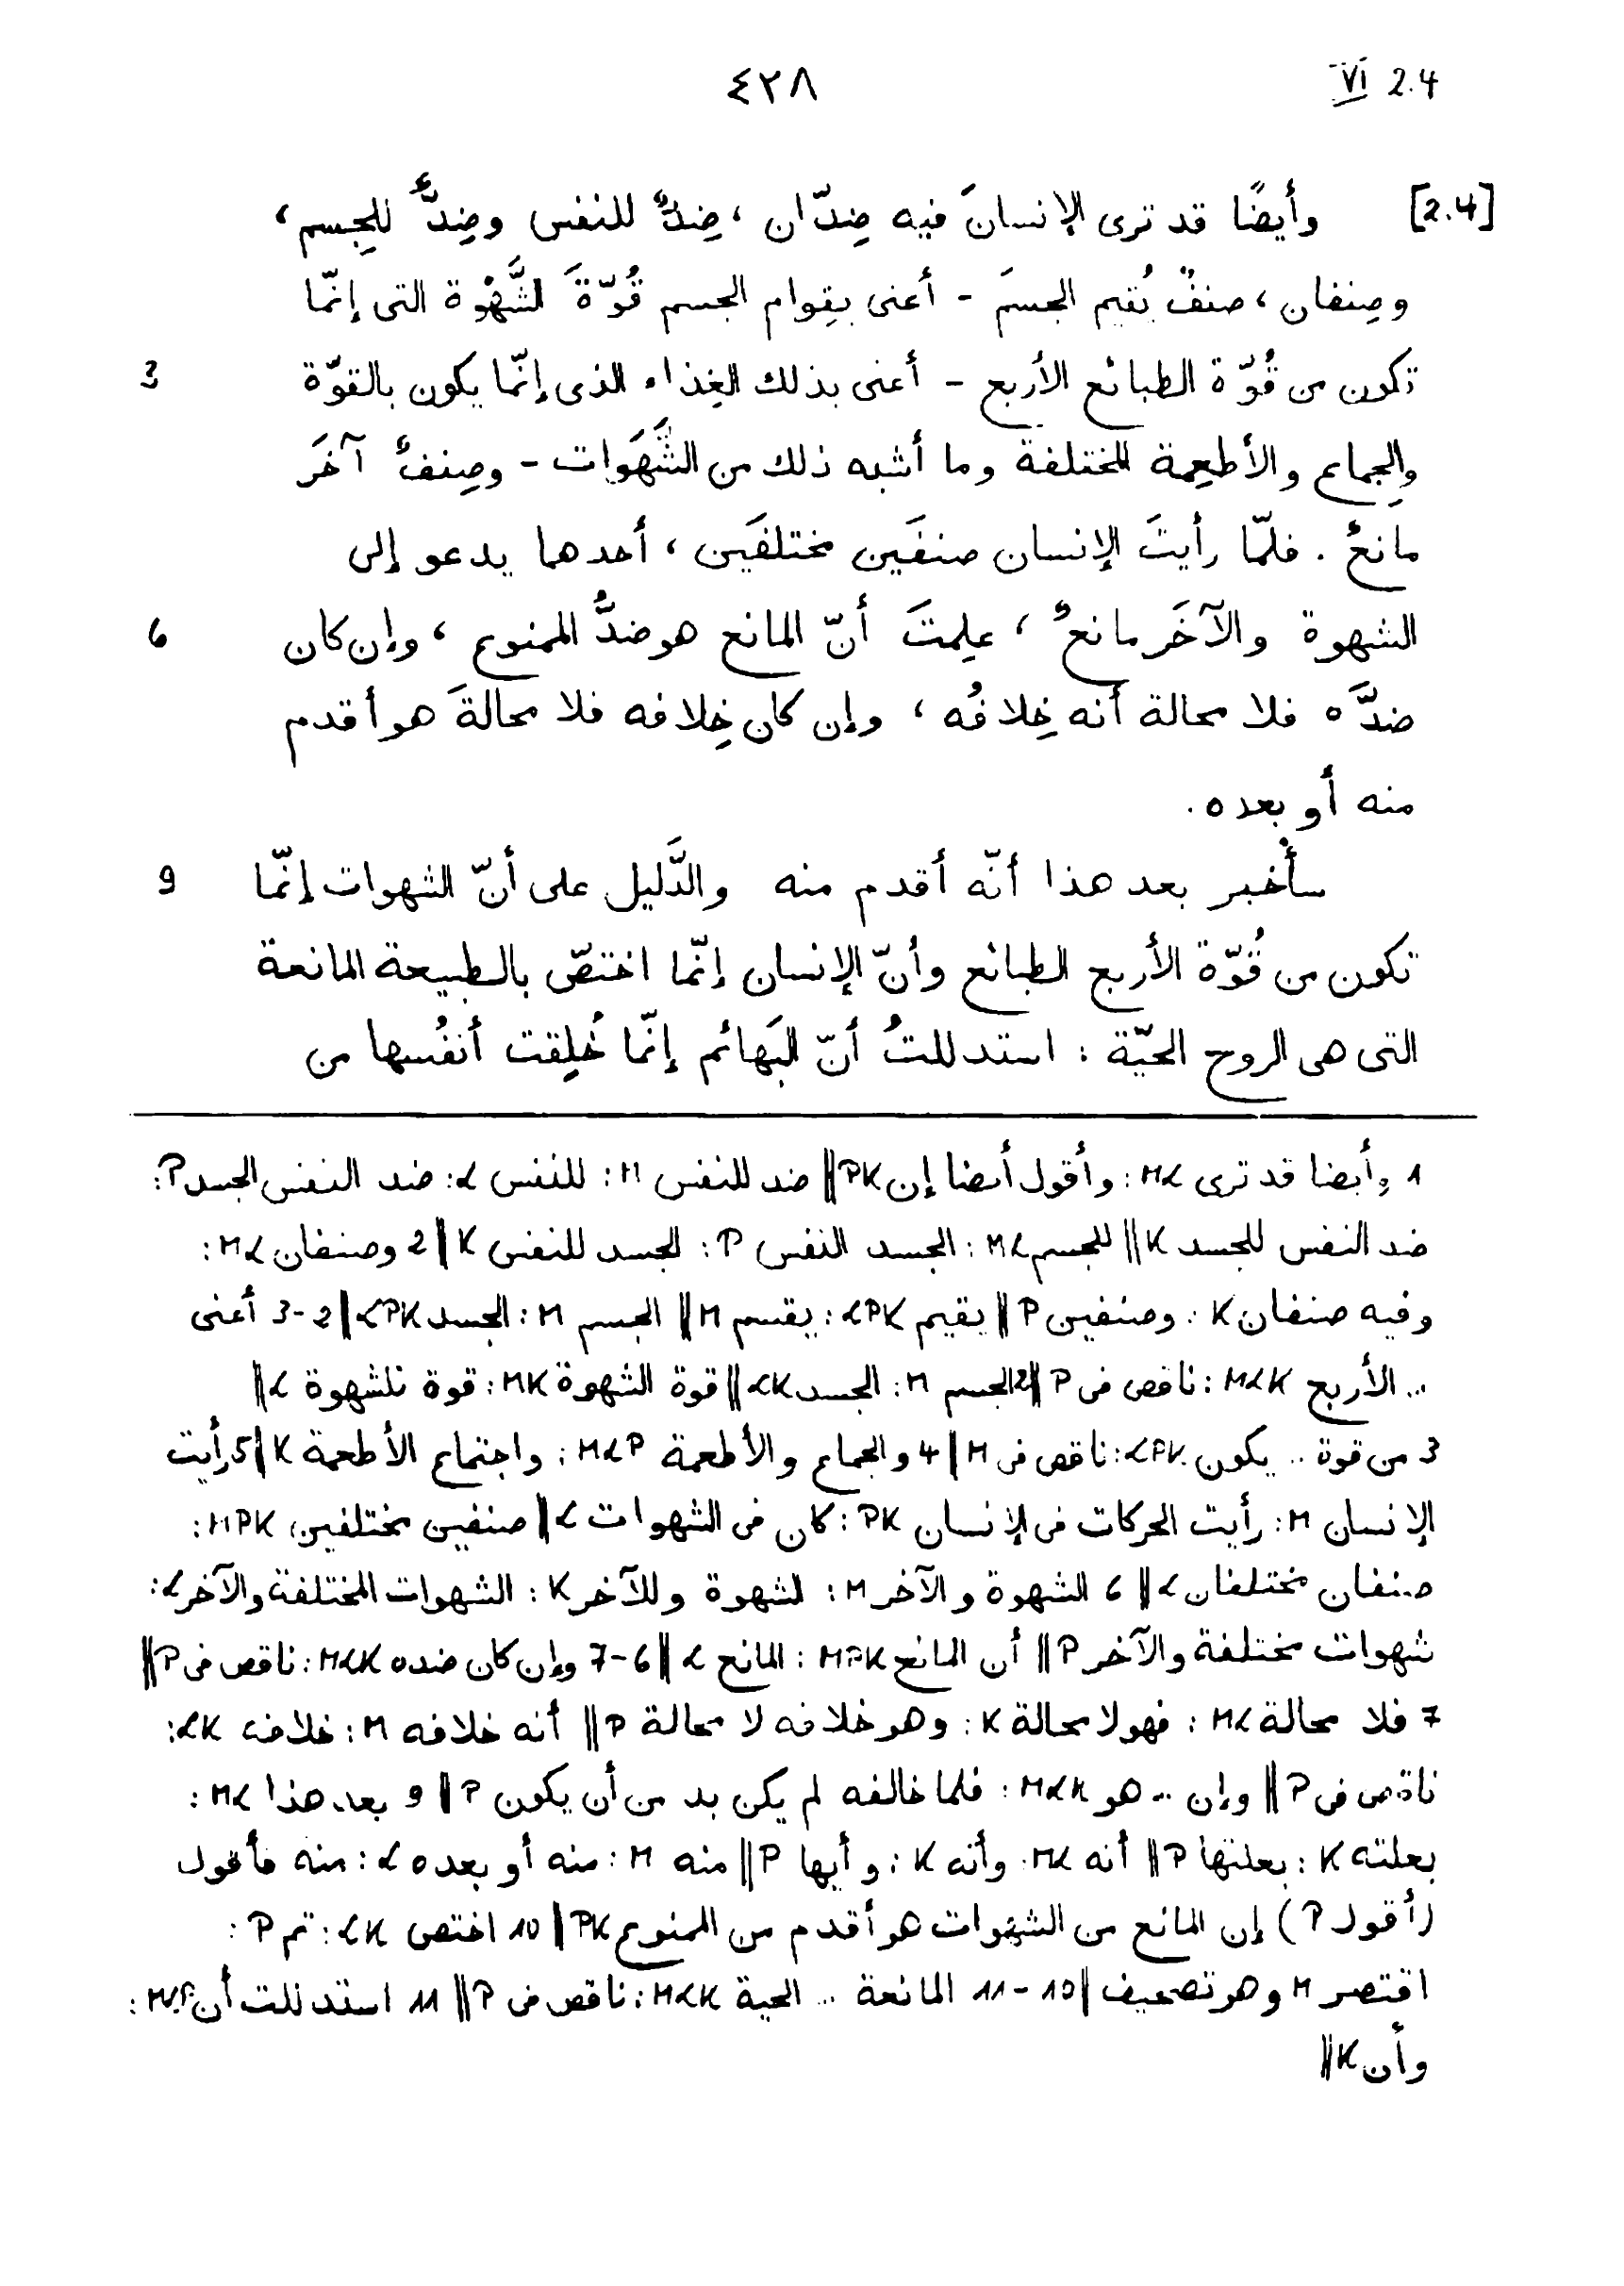 ٤٢٨ VI 2.4
[2.4] وأيضًا قد ترى الإنسانَ فيه ضِدّان ، ضِدٌّ للنفس وضِدٌّ للجِسم ،
وصِنفان ، صنفٌ يُقيم الجسمَ - أعنى بقِوام الجسم قُوّةَ الشَّهْوة التى إنّما
3 تكون من قُوّة الطبائع الأربع - أعنى بذلك الغِذاء الذى إنّما يكون بالقوّة
والجِماع والأطعِمة المختلفة وما أشبه ذلك من الشَّهَوات - وصِنفٌ آخَر
مانعٌ . فلمّا رأيتَ الإنسان صنفَين مختلفَين ، أحدهما يدعو إلى
6 الشهوة والآخَر مانعٌ ، علِمتَ أنّ المانع هو ضدُّ الممنوع ، وإن كان
ضدَّه فلا محالة أنه خِلافُه ، وإن كان خِلافه فلا محالةَ هو أقدم
منه أو بعده .
9 سأُخبر بعد هذا أنّه أقدم منه والدَّليل على أنّ الشهوات إنّما
تكون من قُوّة الأربع الطبائع وأنّ الإنسان إنّما اختصّ بالطبيعة المانعة
التى هى الروح الحيّة : استدللتُ أنّ البَهائم إنّما خُلِقت أنفُسها من
1 وأيضا قد ترى M𝛼 : وأقول أيضا إن PK || ضد للنفس M : للنفس 𝛼 : ضد النفس الجسد P :
ضد النفس للجسد K || للجسم M𝛼 : الجسد النفس P : لجسد للنفس K | 2 وصنفان M𝛼 :
وفيه صنفان K : وصنفين P || يقيم 𝛼PK : يقسم M || الجسم M : الجسد 𝛼PK | 2-3 أعنى
... الأربع M𝛼K : ناقص فى P || 2 الجسم M : الجسد 𝛼K || قوة الشهوة MK : قوة للشهوة 𝛼 ||
3 من قوة .. يكون 𝛼PK : ناقص فى M | 4 والجماع والأطعمة M𝛼P : واجتماع الأطعمة K | 5 رأيت
الإنسان M : رأيت الحركات فى الإنسان PK : كان فى الشهوات 𝛼 || صنفين مختلفين MPK :
صنفان مختلفان 𝛼 || 6 الشهوة والآخر M : لشهوة وللآخر K : الشهوات المختلفة والآخر 𝛼 :
شهوات مختلفة والآخر P || أن المانع MPK : المانع 𝛼 || 6-7 وإن كان ضده M𝛼K : ناقص فى P ||
7 فلا محالة M𝛼 : فهو لا محالة K : وهو خلافه لا محالة P || أنه خلافه M : خلافه 𝛼K :
ناقص فى P || وإن ... هو M𝛼K : فلما خالفه لم يكن بد من أن يكون P || 9 بعد هذا M𝛼 :
بعلته K : بعلتها P || أنه M𝛼 : وأنه K : وأيها P || منه M : منه أو بعده 𝛼 : منه فأقول
(أقول P) إن المانع من الشهوات هو أقدم من الممنوع PK | 10 اختص 𝛼K : تم P :
اقتصر M وهو تصحيف | 10-11 المانعة ... الحية M𝛼K : ناقص فى P || 11 استدللت أن M𝛼P :
وأن K ||